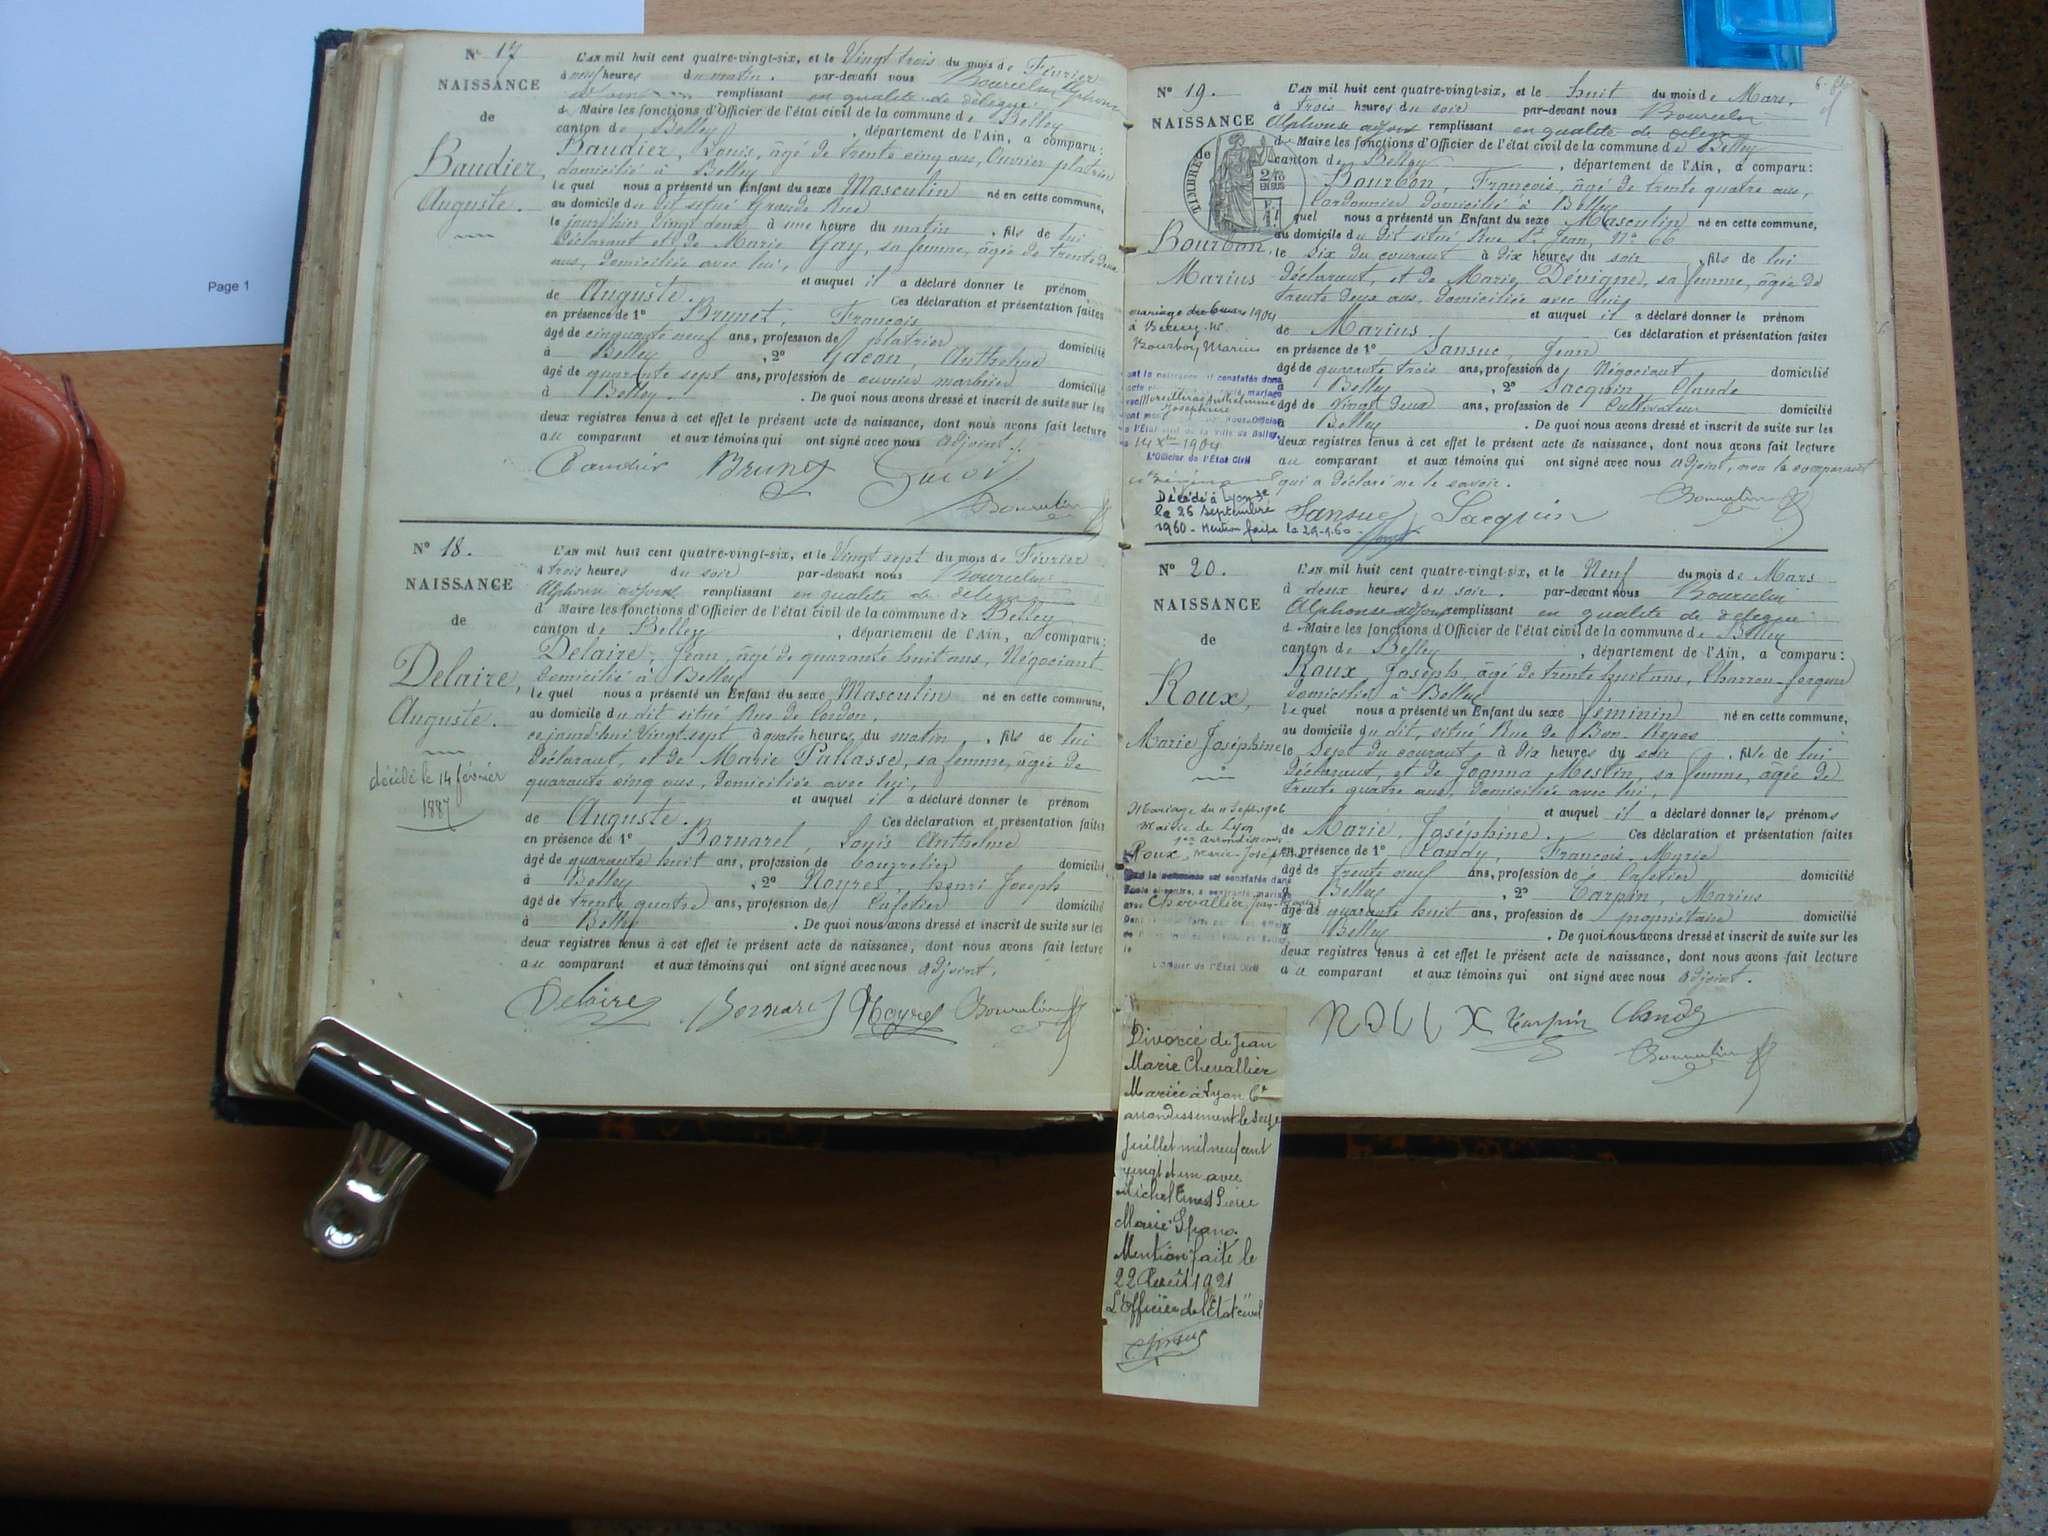 Page 1
N° 17
NAISSANCE
de
Baudier,
Auguste.
L'AN mil huit cent quatre-vingt-six, et le Vingt trois du mois de Février
à neuf heures du matin. par-devant nous Bourcelin Alphonse
remplissant en qualité de délégué
d Maire les fonctions d'Officier de l'état civil de la commune de Belley
canton de Belley, département de l'Ain, a comparu:
Baudier, Louis, âgé de trente cinq ans, Ouvrier platrier
domicilié à Belley
le quel nous a présenté un Enfant du sexe Masculin né en cette commune,
au domicile du dit situé Grande Rue
le jourd'hier Vingt deux à une heure du matin, fils de lui
Déclarant et de Marie Gay, sa femme, âgée de trente deux
ans, domiciliée avec lui,
et auquel il a déclaré donner le prénom
de Auguste. Ces déclaration et présentation faites
en présence de 1° Brunet, François
âgé de cinquante neuf ans, profession de platrier domicilié
à Belley, 2° Anthelme
âgé de quarante sept ans, profession de ouvrier marbrier domicilié
à Belley. De quoi nous avons dressé et inscrit de suite sur les
deux registres tenus à cet effet le présent acte de naissance, dont nous avons fait lecture
au comparant et aux témoins qui ont signé avec nous adjoint.
Baudier Brunet
Bourcelin
N° 18.
NAISSANCE
de
Delaire,
Auguste.
décédé le 14 février
1887
L'AN mil huit cent quatre-vingt-six, et le Vingt sept du mois de Février
à trois heures du soir par-devant nous Bourcelin
Alphonse adjoint remplissant en qualité de délégué
d Maire les fonctions d'Officier de l'état civil de la commune de Belley
canton de Belley, département de l'Ain, a comparu:
Delaire, Jean, âgé de quarante huit ans, Négociant
domicilié à Belley
le quel nous a présenté un Enfant du sexe Masculin né en cette commune,
au domicile du dit situé Rue de Cordon,
ce jourd'hui Vingt sept à quatre heures du matin, fils de lui
Déclarant, et de Marie Pallasse, sa femme, âgée de
quarante cinq ans, domiciliée avec lui,
et auquel il a déclaré donner le prénom
de Auguste. Ces déclaration et présentation faites
en présence de 1° Bornarel, Louis Anthelme
âgé de quarante huit ans, profession de domicilié
à Belley, 2° Noyret, henri Joseph
âgé de trente quatre ans, profession de Cafetier domicilié
à Belley. De quoi nous avons dressé et inscrit de suite sur les
deux registres tenus à cet effet le présent acte de naissance, dont nous avons fait lecture
au comparant et aux témoins qui ont signé avec nous adjoint,
Delaire Bornarel Noyret Bourcelin
N° 19.
NAISSANCE
de
TIMBRE
Bourbon,
Marius
mariage du 6 mars 1904
à Belley. N°
Bourbon, Marius
Josephine
14 Xbre 1904
L'Officier de l'État Civil
Décédé à Lyon 3e
le 26 Septembre
1960 - Mention faite le 29-9-60
L'AN mil huit cent quatre-vingt-six, et le huit du mois de Mars.
à trois heures du soir par-devant nous Bourcelin
Alphonse adjoint remplissant en qualité de délégué
de Maire les fonctions d'Officier de l'état civil de la commune de Belley
canton de Belley, département de l'Ain, a comparu:
Bourbon, François, âgé de trente quatre ans,
Cordonnier domicilié à Belley
quel nous a présenté un Enfant du sexe Masculin né en cette commune,
au domicile du dit situé Rue St Jean, N° 66
le Six du courant à dix heures du soir, fils de lui
déclarant, et de Marie Dévigne, sa femme, âgée de
trente deux ans, domiciliée avec lui,
et auquel il a déclaré donner le prénom
de Marius. Ces déclaration et présentation faites
en présence de 1° Sansuc, Jean
âgé de quarante trois ans, profession de Négociant domicilié
à Belley, 2° Jacquin, Claude
âgé de vingt deux ans, profession de Cultivateur domicilié
à Belley. De quoi nous avons dressé et inscrit de suite sur les
deux registres tenus à cet effet le présent acte de naissance, dont nous avons fait lecture
au comparant et aux témoins qui ont signé avec nous adjoint, non le comparant
qui a déclaré ne le savoir.
Sansuc Jacquin Bourcelin
N° 20.
NAISSANCE
de
Roux,
Marie Joséphine
Mariage du 11 Sept. 1906
Mairie de Lyon
1er arrondissement
Roux, Marie Joséphine
avec Chevallier Jean
L'Officier de l'État Civil
L'AN mil huit cent quatre-vingt-six, et le Neuf du mois de Mars
à deux heures du soir. par-devant nous Bourcelin
Alphonse adjoint remplissant en qualité de délégué
d Maire les fonctions d'Officier de l'état civil de la commune de Belley
canton de Belley, département de l'Ain, a comparu:
Roux Joseph, âgé de trente huit ans, Charron-forgeron
domicilié à Belley
le quel nous a présenté un Enfant du sexe féminin né en cette commune,
au domicile du dit, situé Rue de Bon-Repos
le Sept du courant, à dix heures du soir, fille de lui
déclarant, et de Joanna Mestin, sa femme, âgée de
trente quatre ans, domiciliée avec lui,
et auquel il a déclaré donner le prénoms
de Marie Joséphine. Ces déclaration et présentation faites
en présence de 1° Candy, François
âgé de trente neuf ans, profession de Cafetier domicilié
à Belley, 2° Tarpin, Marius
âgé de quarante huit ans, profession de propriétaire domicilié
à Belley. De quoi nous avons dressé et inscrit de suite sur les
deux registres tenus à cet effet le présent acte de naissance, dont nous avons fait lecture
au comparant et aux témoins qui ont signé avec nous adjoint.
ROUX Tarpin Candy
Bourcelin
Divorcée de Jean
Marie Chevallier
Mariée à Lyon 6e
arrondissement le seize
juillet mil neuf cent
vingt et un avec
Michel Ernest Pierre
Marie Spano.
Mention faite le
22 Août 1921
L'Officier de l'État civil